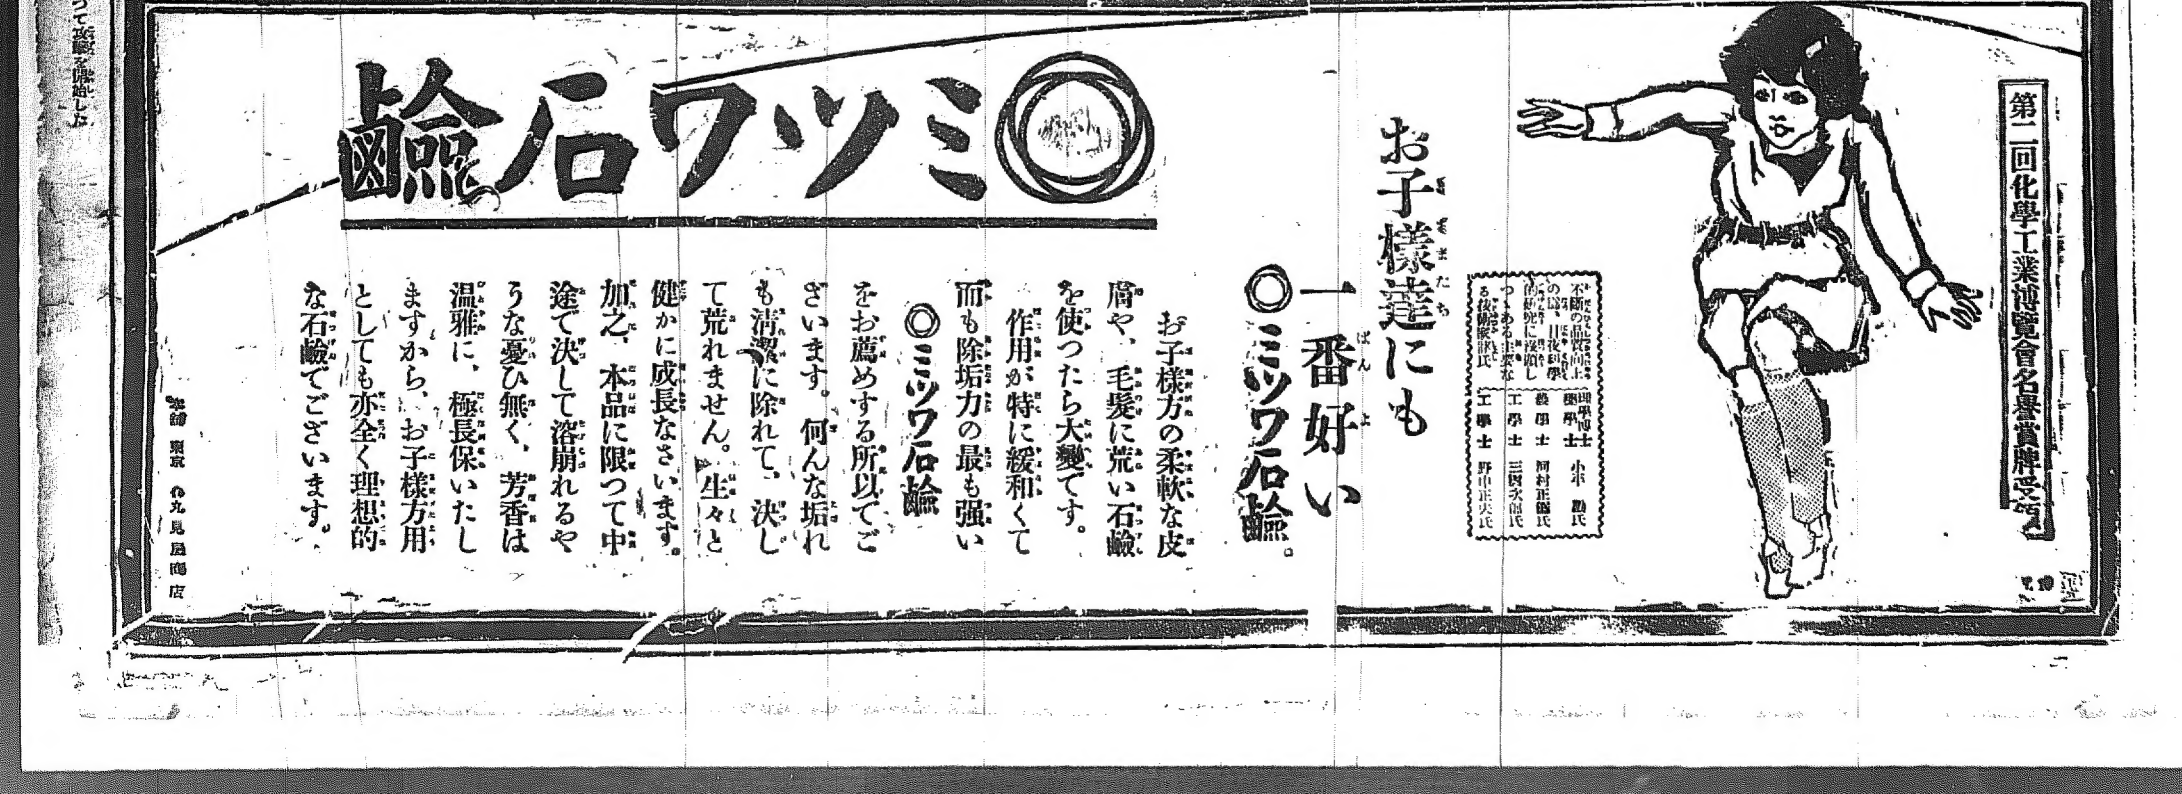 第二回化學工業博覽會名譽賞牌受領
不斷の品質向上
の爲、日夜科學
的研究に沒頭し
つゝある主要な
る技術家諸氏
藥學士
農學士 河村正
工學士 三
工學士 野中正夫氏
お子樣達にも
一番好い
◎ミツワ石鹼。
◎ミツワ石鹼
お子樣方の柔軟な皮
膚や、毛髮に荒い石鹼
を使つたら大變です。
作用が特に緩和くて
而も除垢力の最も强い
◎ミツワ石鹼
をお薦めする所以でご
ざいます。何んな垢れ
も淸潔に除れて、決し
て荒れません。生々と
健かに成長なさいます。
加之、本品に限つて中
途で決して溶崩れるや
うな憂ひ無く、芳香は
温雅に、極長保いたし
ますから、お子樣方用
としても亦全く理想的
な石鹼でございます。
本舖 東京 丸見屋商店
て攻擊を開始した